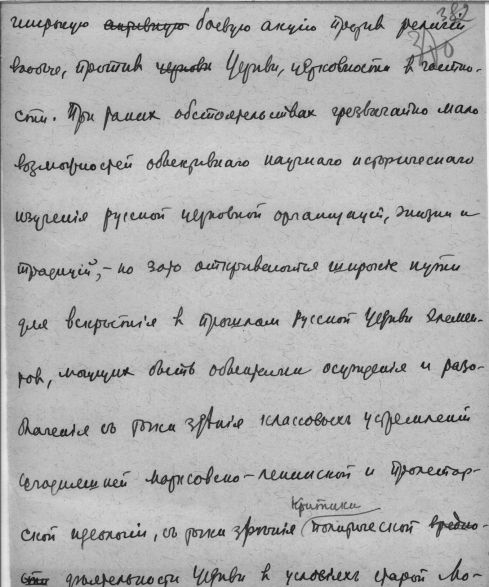 382
380
широкую активную боевую акцию против религии
вообще, против церкви Церкви, церковности в частно-
сти. При таких обстоятельствах чрезвычайно мало
возможностей объективнаго научнаго историческаго
изучения русской церковной организации, жизни и
традиций, – но зато открываются широкие пути
для вскрытия в прошлом Русской Церкви элемен-
тов, могущих быть объектами осуждения и разо-
блачения съ точки зрѣния классовых устремлений
сегодняшней марксовско-ленинской и пролетар-
критики
ской идеологии, съ точки зрѣния политической вредно-
сти деятельности Церкви в условиях старой Мо-